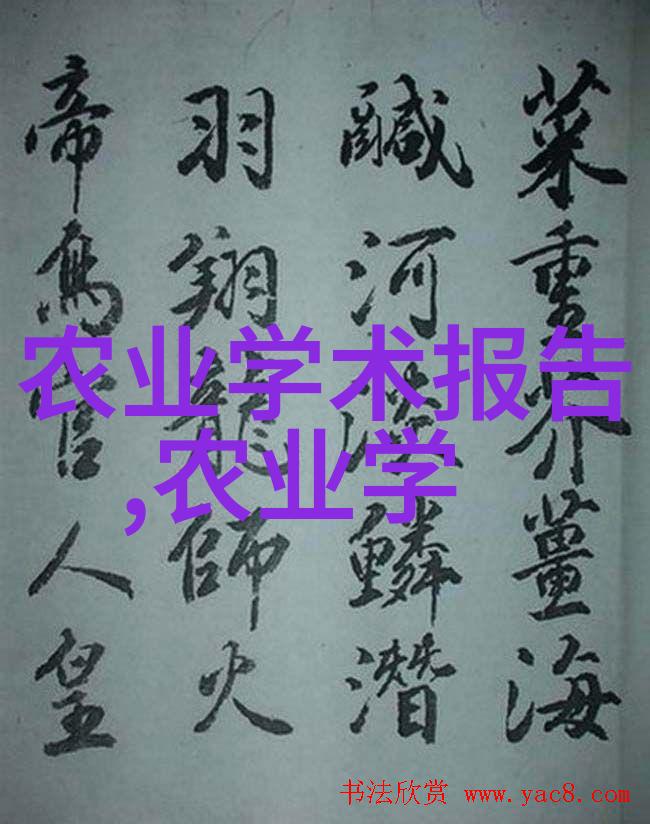 菜重芥薑海
鹹河淡鱗潛
羽翔龍師火
帝鳥官人皇
农业学术报告
,农业学
书法欣赏 www.yac8.com